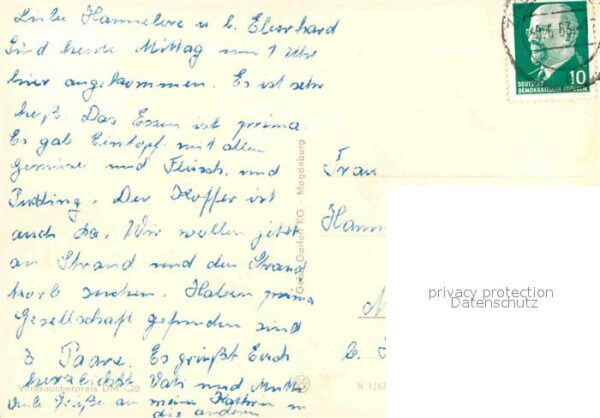 Liebe Hannelore u. l. Eberhard
Sind heute Mittag um 1 Uhr
hier angekommen. Es ist sehr
heiß. Das Essen ist prima.
Es gab Eintopf mit allem
Gemüse und Fleisch und
Pudding. Der Koffer ist
auch da. Wir wollen jetzt
an Strand und den Strand
korb suchen. Haben prima
Gesellschaft gefunden sind
3 Paare. Es grüßt Euch
herzlichst Vati und Mutti
Viele Grüße an meine Kathrin u
die anderen
Verbraucherpreis DM -,20
Garloff KG · Magdeburg
N 1/62
Frau
Hann
DEUTSCHE
DEMOKRATISCHE REPUBLIK
10
privacy protection
Datenschutz